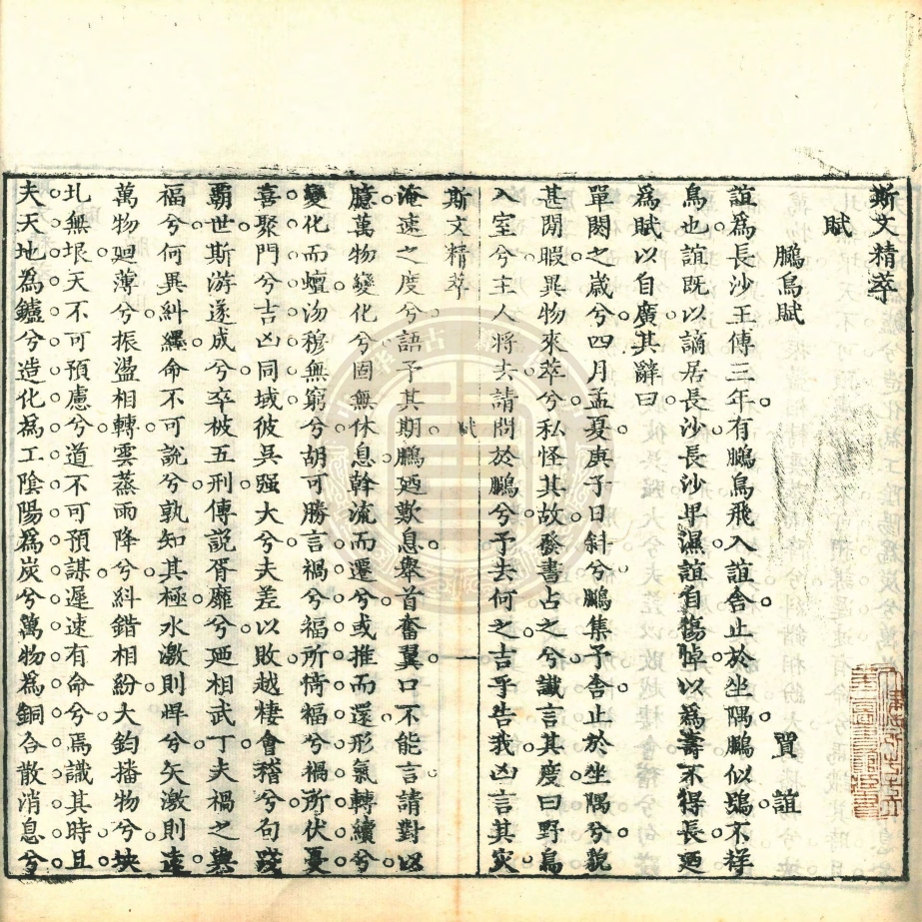 斯文精萃
賦
鵩鳥賦　賈誼
誼為長沙王傅三年有鵩鳥飛入誼舍止於坐隅鵩似鴞不祥
鳥也誼既以謫居長沙長沙卑濕誼自傷悼以為壽不得長廼
為賦以自廣其辭曰
單閼之歲兮四月孟夏庚子日斜兮鵩集予舍止於坐隅兮貌
甚閒暇異物來萃兮私怪其故發書占之兮讖言其度曰野鳥
入室兮主人將去請問於鵩兮予去何之吉乎告我凶言其灾
斯文精萃　賦　一
淹速之度兮語予其期鵩廼歎息舉首奮翼口不能言請對以
臆萬物變化兮固無休息斡流而遷兮或推而還形氣轉續兮
變化而蟺沕穆無窮兮胡可勝言禍兮福所倚福兮禍所伏憂
喜聚門兮吉凶同域彼吳强大兮夫差以敗越棲會稽兮句踐
霸世斯游遂成兮卒被五刑傅說胥靡兮廼相武丁夫禍之與
福兮何異糾纆命不可說兮孰知其極水激則悍兮矢激則遠
萬物廻薄兮振盪相轉雲蒸雨降兮糾錯相紛大鈞播物兮坱
圠無垠天不可預慮兮道不可預謀遲速有命兮焉識其時且
夫天地為鑪兮造化為工陰陽為炭兮萬物為銅合散消息兮